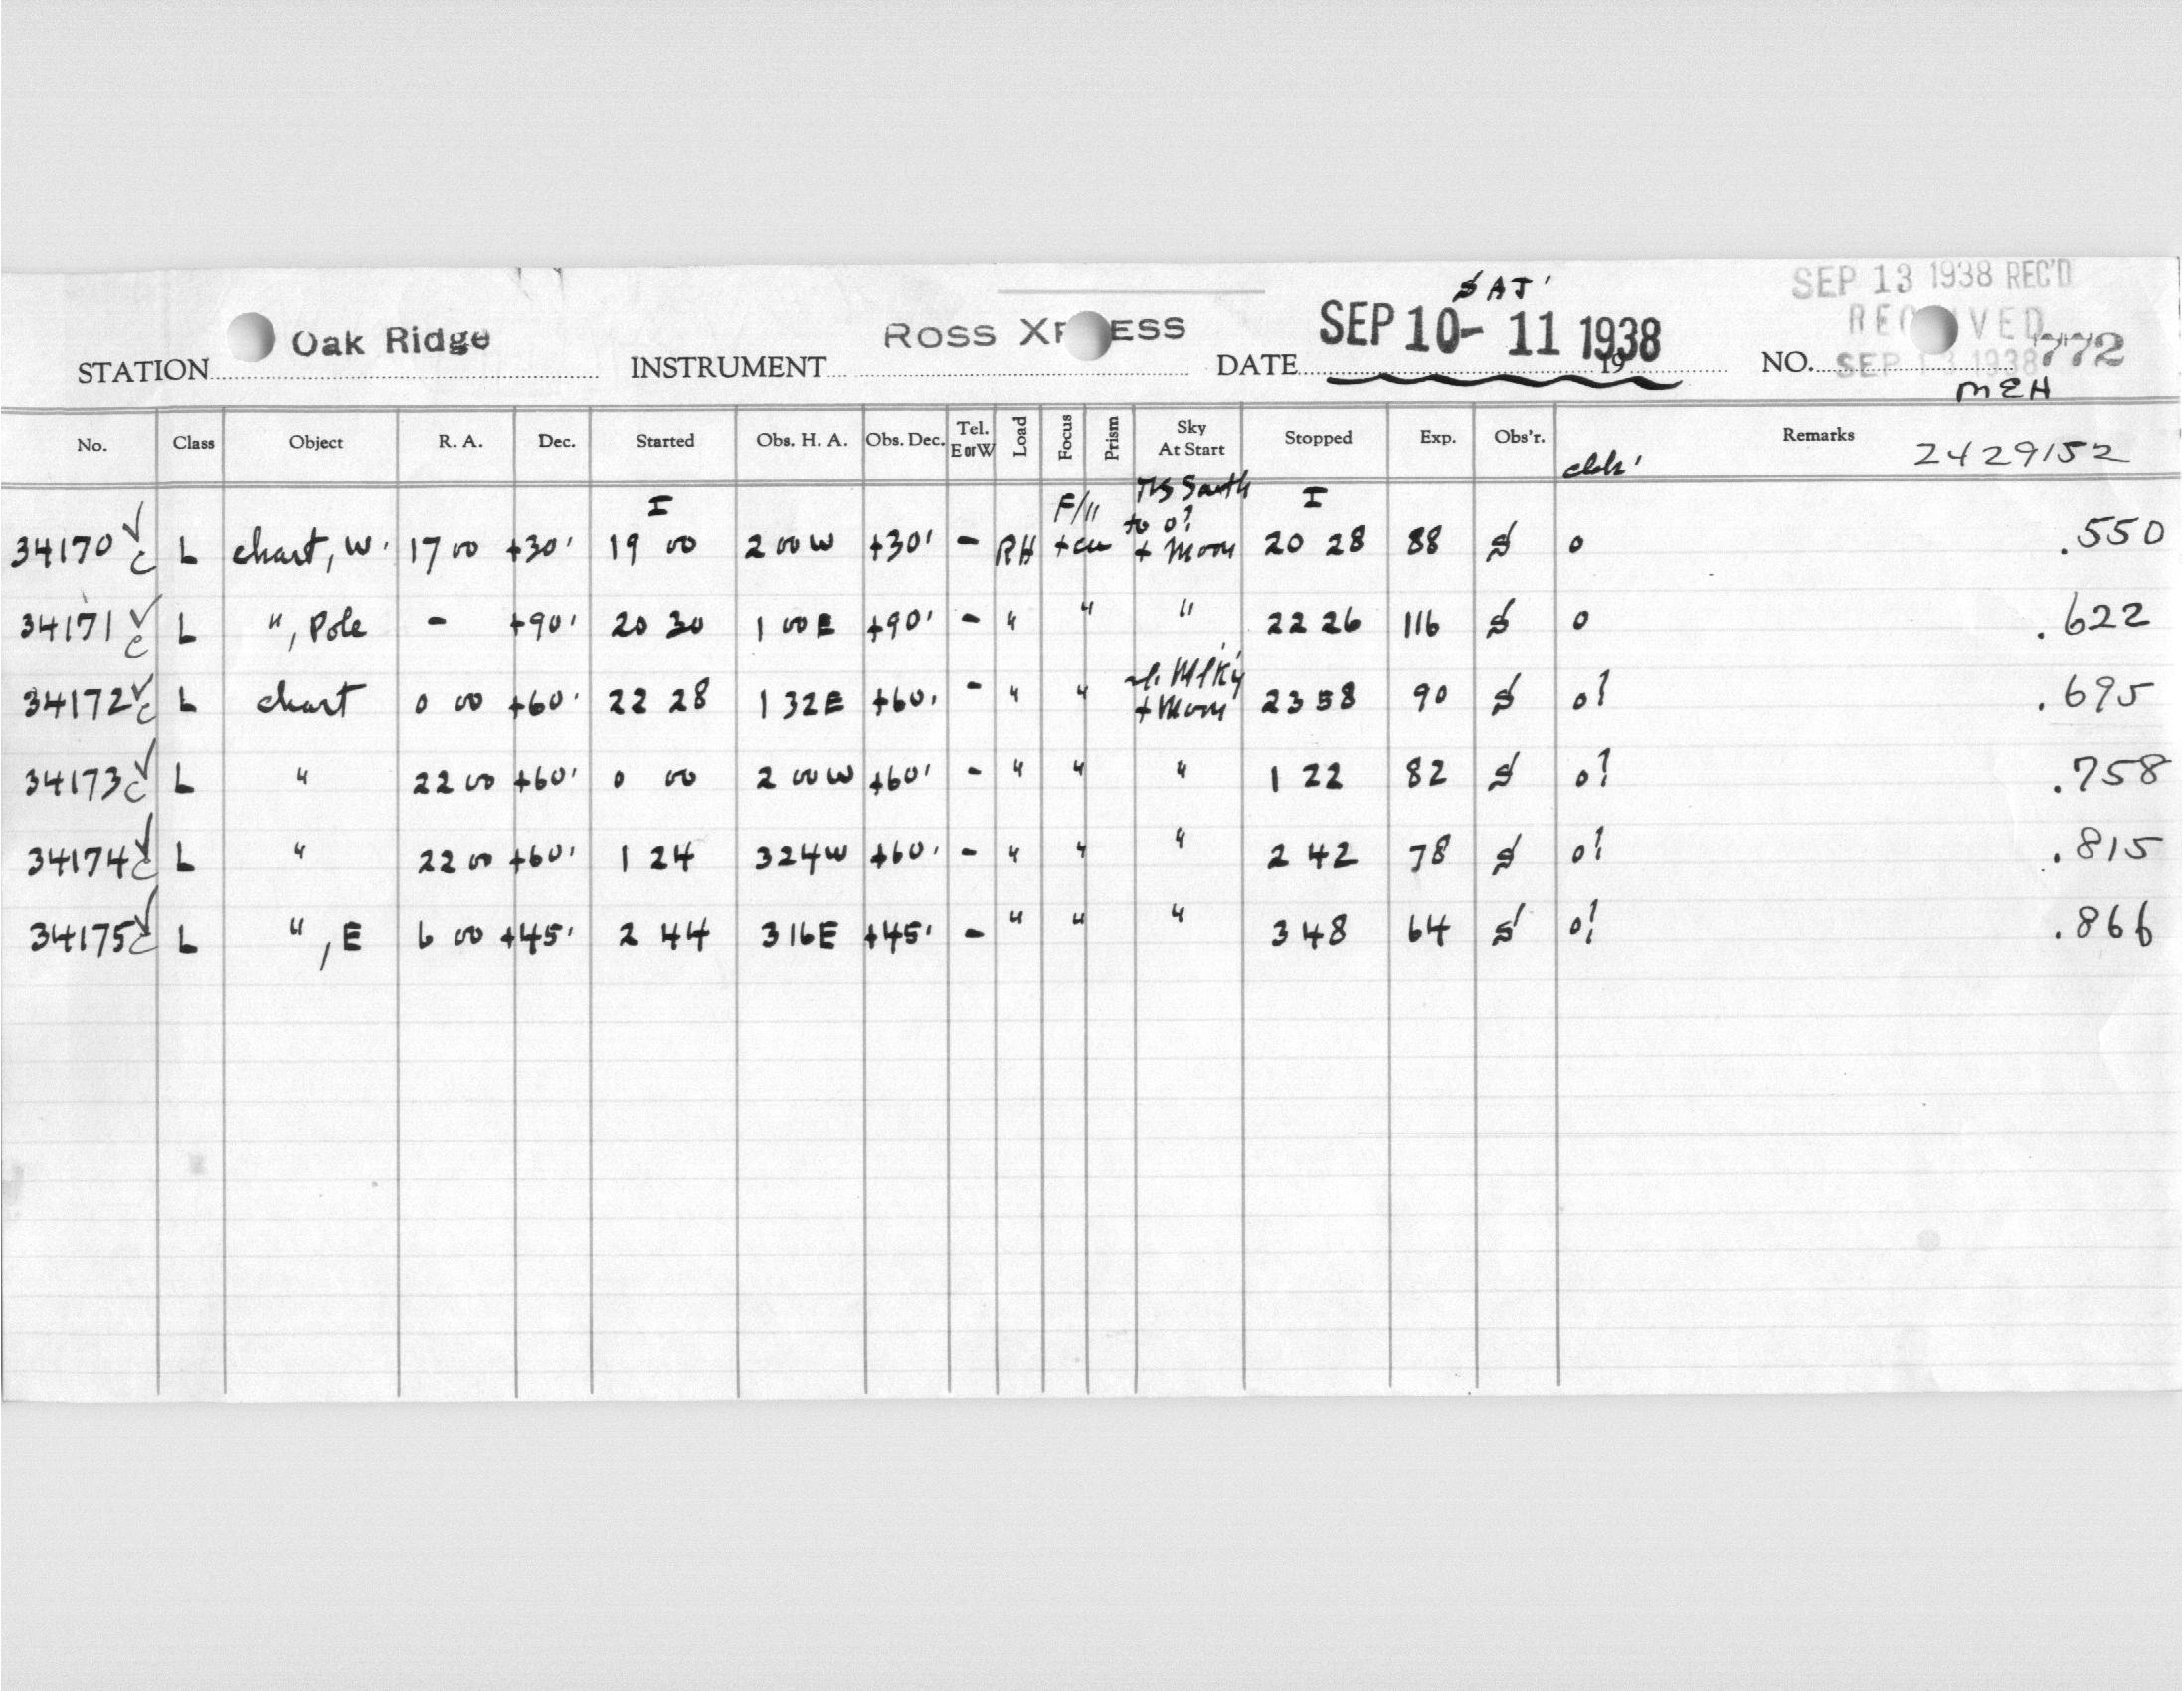 SAT'
SEP 13 1938 REC'D
STATION Oak Ridge INSTRUMENT ROSS XPRESS DATE SEP 10-11 1938 19 NO. 772
RECEIVED
SEP 13 1938
MEH
No. Class Object R. A. Dec. Started Obs. H. A. Obs. Dec. Tel. E or W Load Focus Prism Sky At Start Stopped Exp. Obs'r. Remarks 2429152
I F/11 South to o? I
34170 c L chart, W. 17 00 +30' 19 00 2 00 W +30' - RH + Moon 20 28 88 S o .550
34171 c L ", Pole - +90' 20 30 1 00 E +90' - " " " 22 26 116 S o .622
34172 c L chart 0 00 +60' 22 28 1 32 E +60' - " " Mlky + Moon 23 58 90 S o? .695
34173 c L " 22 00 +60' 0 00 2 00 W +60' - " " " 1 22 82 S o? .758
34174 c L " 22 00 +60' 1 24 3 24 W +60' - " " " 2 42 78 S o? .815
34175 c L ", E 6 00 +45' 2 44 3 16 E +45' - " " " 3 48 64 S o? .866